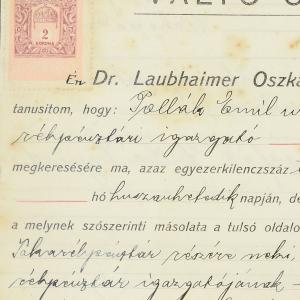 VÁLTÓ Ó
2
KORONA
Én Dr. Laubhaimer Oszká
tanusitom, hogy: Pollák Emil u
igazgató
megkeresésére ma, azaz egyezerkilenczszáz
hó huszonhetedik napján, de
a melynek szószerinti másolata a tulsó oldalo
Takarékpénztár részére
igazgatójának